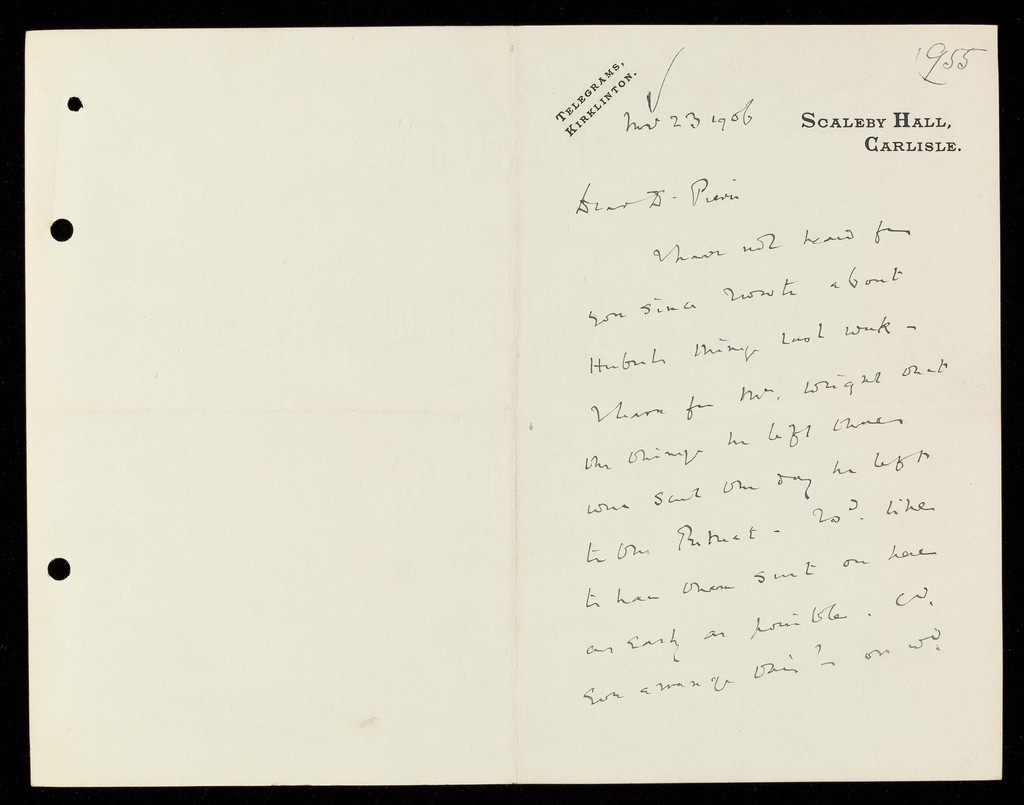 1955
TELEGRAMS,
KIRKLINTON.
Nov 23 1906
SCALEBY HALL,
CARLISLE.
Dear Dr. Pierce
I have not heard from
you since I wrote about
Huberts things last week -
I hear from Mrs. Wright that
the things he left there
were sent the day he left
to the Retreat - I wd. like
to have them sent on here
as early as possible. Cd.
you arrange this? - or wd.